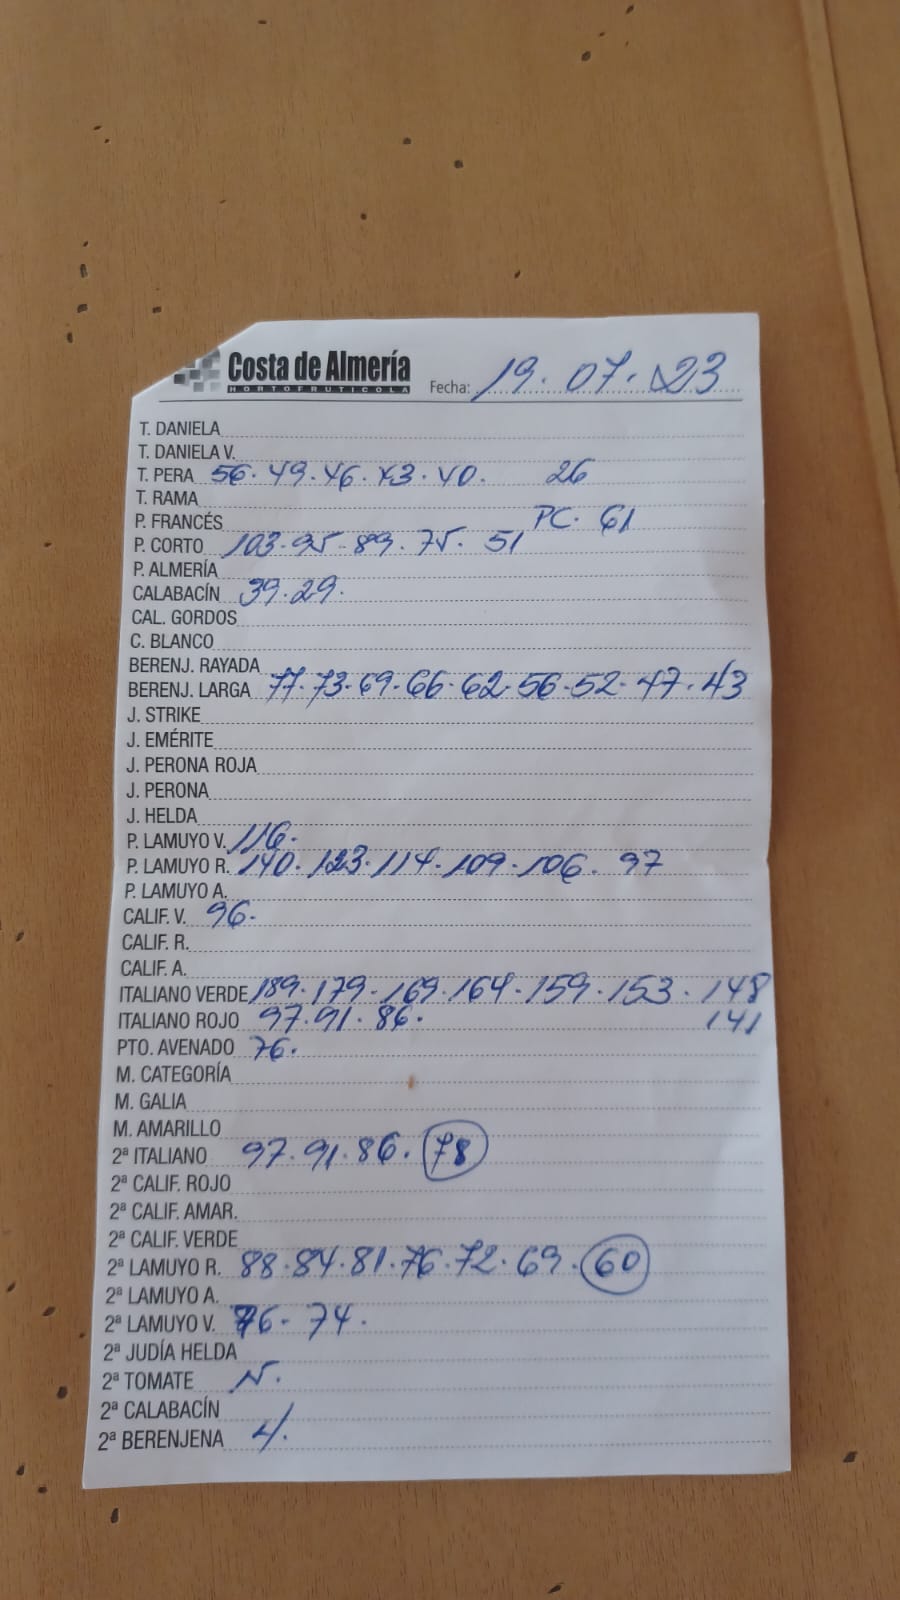 Costa de Almería
HORTOFRUTICOLA
Fecha: 19.07.23
T. DANIELA
T. DANIELA V.
T. PERA 56.49.46.43.40. 26
T. RAMA
P. FRANCÉS PC. 61
P. CORTO 103.95.89.75. 51
P. ALMERÍA
CALABACÍN 39.29.
CAL. GORDOS
C. BLANCO
BERENJ. RAYADA
BERENJ. LARGA 77.73.69.66.62.56.52.47.43
J. STRIKE
J. EMÉRITE
J. PERONA ROJA
J. PERONA
J. HELDA
P. LAMUYO V. 116.
P. LAMUYO R. 140.123.114.109.106. 97
P. LAMUYO A.
CALIF. V. 96.
CALIF. R.
CALIF. A.
ITALIANO VERDE 189.179.169.164.159.153.148
ITALIANO ROJO 97.91.86. 141
PTO. AVENADO 76.
M. CATEGORÍA
M. GALIA
M. AMARILLO
2ª ITALIANO 97.91.86. 78
2ª CALIF. ROJO
2ª CALIF. AMAR.
2ª CALIF. VERDE
2ª LAMUYO R. 88.84.81.76.72.69.60
2ª LAMUYO A.
2ª LAMUYO V. 76. 74.
2ª JUDÍA HELDA
2ª TOMATE N.
2ª CALABACÍN
2ª BERENJENA